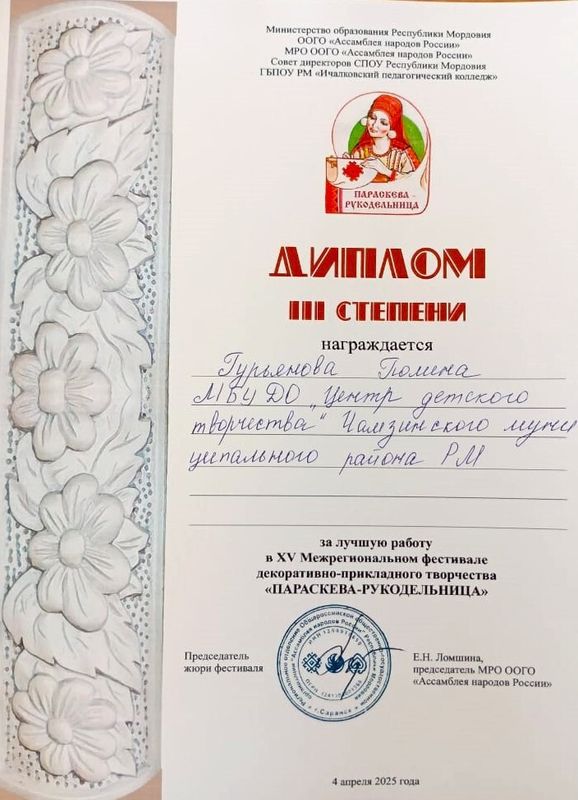 Министерство образования Республики Мордовия
ООГО «Ассамблея народов России»
МРО ООГО «Ассамблея народов России»
Совет директоров СПОУ Республики Мордовия
ГБПОУ РМ «Ичалковский педагогический колледж»
ПАРАСКЕВА -
РУКОДЕЛЬНИЦА
ДИПЛОМ
III СТЕПЕНИ
награждается
Гурьянова Полина
МБУДО „Центр детского
творчества" Чамзинского муни
ципального района РМ
за лучшую работу
в XV Межрегиональном фестивале
декоративно-прикладного творчества
«ПАРАСКЕВА-РУКОДЕЛЬНИЦА»
Председатель
жюри фестиваля
Е.Н. Ломшина,
председатель МРО ООГО
«Ассамблея народов России»
г.Саранск
4 апреля 2025 года